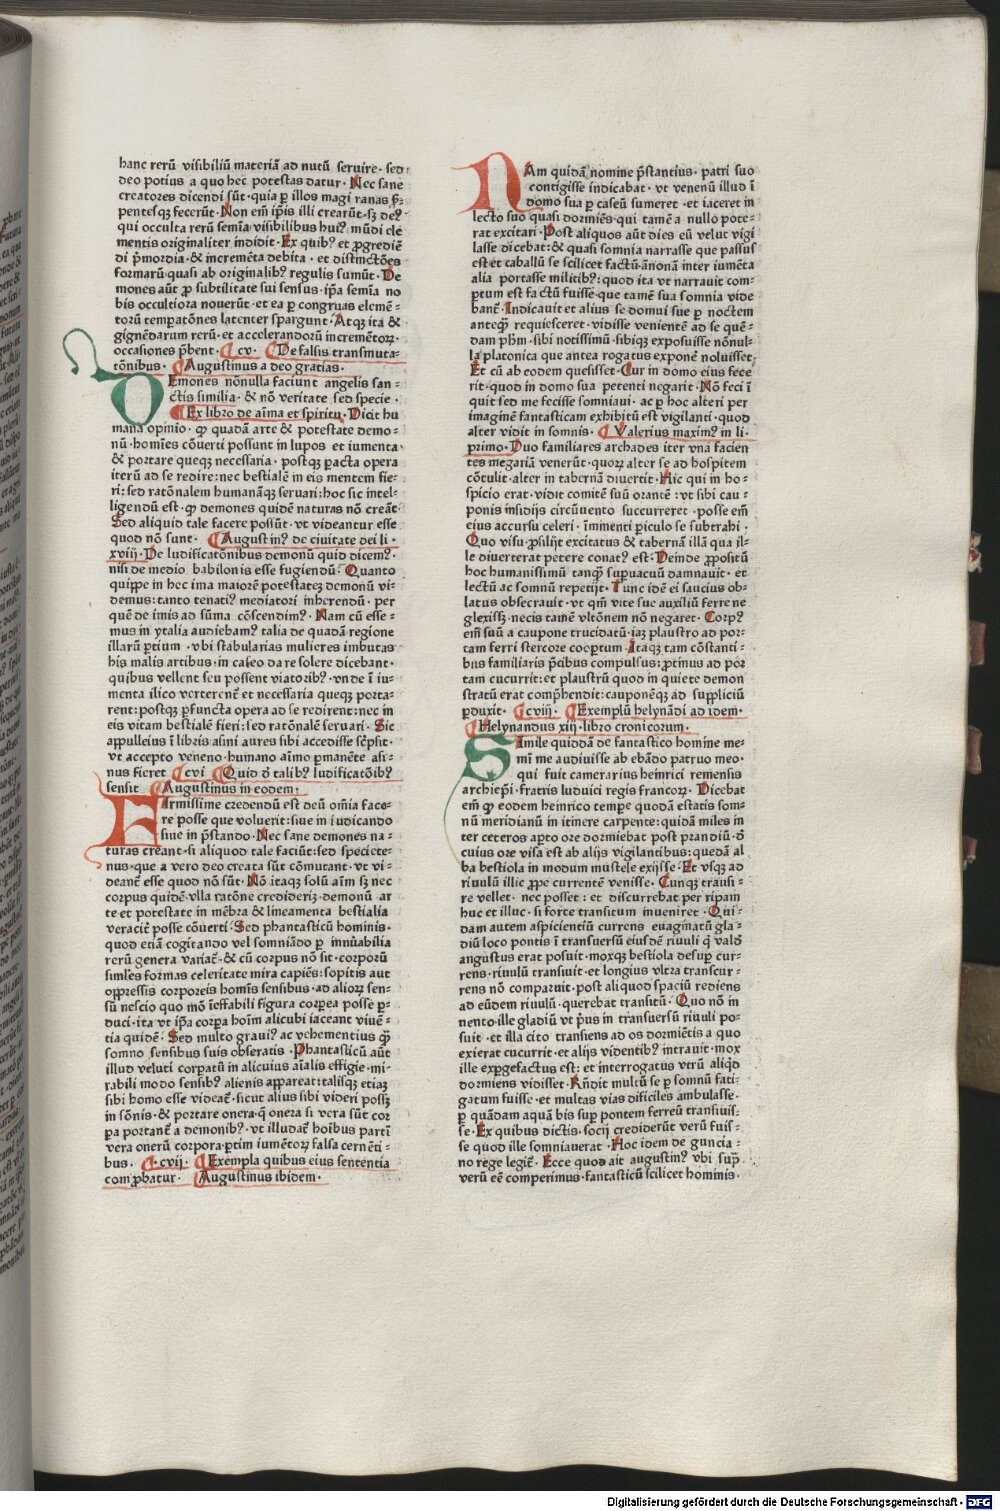 hanc rerū visibiliū materiā ad nutū seruire· sed
deo potius a quo hec potestas datur· Nec sane
creatores dicendi sūt· quia ꝑ illos magi ranas ẜ-
pentesqꝫ fecerūt· Non em̄ ip̄is illi crearūt· sꝫ deꝰ
qui occulta rerū semīa visibilibus huiꝰ mūdi ele
mentis originaliter indidit· Ex quibꝰ et ꝓgrediē
di p̄mordia· & incremēta debita· et distinctōes
formarū quasi ab originalibꝰ regulis sumūt· De
mones aūt ꝓ subtilitate sui sensus· ip̄a semīa no
bis occultiora nouerūt· et ea ꝑ congruas elemē-
torū temꝑatōnes latenter spargunt· Atqꝫ ita &
gignēdarum rerū· et accelerandorū incremētoꝝ·
occasiones p̄bent· cv· De falsis transmuta-
tōnibus· Augustinus a deo gratias·
DEmones nōnulla faciunt angelis san-
ctis similia· & nō veritate sed specie·
Ex libro de aīma et spiritu· Dicit hu
mana opinio· ꝙ quadā arte & potestate demo-
nū· homīes cōuerti possunt in lupos et iumenta·
& portare queqꝫ necessaria· postqꝫ ꝑacta opera
iterū ad se redire: nec bestialē in eis mentem fie-
ri: sed ratōnalem humanāqꝫ seruari: hoc sic intel-
ligendū est· ꝙ demones quidē naturas nō creāt·
Sed aliquid tale facere possūt· vt videantur esse
quod nō sunt· Augustinꝰ de ciuitate dei li·
xviij· De ludificatōnibus demonū quid dicemꝰ·
nisi de medio babilonis esse fugiendū· Quanto
quippe in hec ima maiorē potestateꝫ demonū vi-
demus: tanto tenatiꝰ mediatori inherendū· per
quē de imis ad sūma cōscendimꝰ· Nam cū esse-
mus in ytalia audiebamꝰ talia de quadā regione
illarū ꝑtium· vbi stabularias mulieres imbutas
his malis artibus· in caseo dare solere dicebant·
quibus vellent seu possent viatoribꝰ· vnde ī iu-
menta ilico verterent̄ et necessaria queqꝫ porta-
rent: postqꝫ ꝑfuncta opera ad se redirent: nec in
eis vitam bestialē fieri: sed ratōnalē seruari· Sic
appulleius ī libris asini aures sibi accedisse sc̄psit·
vt accepto veneno· humano aīmo ꝑmanēte asi-
nus fieret cvi Quid đ talibꝰ ludificatōibꝰ
sensit Augustinus in eodem:
FIrmissime credendū est deū om̄ia face-
re posse que voluerit: siue in iudicando
siue in p̄stando· Nec sane demones na-
turas creant· si aliquod tale faciūt: sed specie te-
nus· que a vero deo creata sūt cōmutant· vt vi-
deant̄ esse quod nō sūt· Nō itaqꝫ solū aīm sꝫ nec
corpus quidē vlla ratōne crediderīꝫ demonū ar
te et potestate in mēbra & lineamenta bestialia
veracit̄ posse cōuerti· Sed phantasticū hominis·
quod etiā cogitando vel somniādo ꝑ innūabilia
rerū genera variat̄· & cū corpus nō sit· corporū
similes formas celeritate mira capiēs: sopitis aut
oppressis corporeis homīs sensibus· ad alioꝝ sen-
sū nescio quo mō īeffabili figura corꝑea posse ꝑ-
duci· ita vt ip̄a corꝑa hoīm alicubi iaceant viuē-
tia quidē· Sed multo grauiꝰ ac vehementius ꝙ̄
somno sensibus suis obseratis· Phantasticū aūt
illud veluti corꝑatū in alicuius aīalis effigie· mi-
rabili modo sensibꝰ alienis appareat: talisqꝫ etiaꝫ
sibi homo esse videat̄· sicut alius sibi videri possꝫ
in sōnis· & portare onera· ꝙ onera si vera sūt cor
ꝑa portant̄ a demonibꝰ· vt illudat̄ hoībus partī
vera onerū corpora· ꝑtim iumētoꝝ falsa cernēti-
bus· cvij· Exempla quibus eius sententia
comꝓbatur· Augustinus ibidem·
NAm quidā nomine p̄stantius· patri suo
contigisse indicabat· vt venenū illud ī
domo sua ꝑ caseū sumeret· et iaceret in
lecto suo quasi dormiēs· qui tamē a nullo pote-
rat excitari· Post aliquos aūt dies eū velut vigi
lasse dicebat: & quasi somnia narrasse que passus
est· et caballū se scilicet factū· ānonā inter iumēta
alia portasse militibꝰ: quod ita vt narrauit com-
ꝑtum est factū fuisse· que tamē sua somnia vide
bant̄· Indicauit et alius se domui sue ꝑ noctem
anteqꝫ̄ requiesceret· vidisse venientē ad se quē-
dam ph̄m· sibi notissimū· sibiqꝫ exposuisse nōnul-
la platonica que antea rogatus exponē noluisset·
Et cū ab eodem quesisset· Cur in domo eius fece
rit· quod in domo sua petenti negarit· Nō feci ī
quit sed me fecisse somniaui· ac ꝑ hoc alteri per
imaginē fantasticam exhibitū est vigilanti· quod
alter vidit in somnis· Valerius maximꝰ in li·
primo· Duo familiares archades iter vna facien
tes megariā venerūt· quoꝝ alter se ad hospitem
cōtulit· alter in tabernā diuertit· Hic qui in ho-
spicio erat· vidit comitē suū orantē· vt sibi cau-
ponis īnsidijs circūuento succurreret· posse em̄
eius accursu celeri· īmīnenti ꝑiculo se subtrahi·
Quo visu ꝓsilijt excitatus & tabernā illā qua il-
le diuerterat petere conatꝰ est· Deinde ꝓpositū
hoc humanissimū tanꝙ̄ suꝑuacuū damnauit· et
lectū ac somnū repetijt· Tunc idē ei saucius ob-
latus obsecrauit· vt qm̄ vite sue auxiliū ferre ne
glexissꝫ· necis tamē vltōnem nō negaret· Corpꝰ
em̄ suū a caupone trucidatū· iaꝫ plaustro ad por-
tam ferri stercore cooꝑtum· Itaqꝫ tam cōstanti-
bus familiaris p̄cibus compulsus: ꝓtinus ad por
tam cucurrit: et plaustrū quod in quiete demon
stratū erat comp̄hendit: cauponēqꝫ ad suppliciū
ꝑduxit· cviij· Exemplū helynādi ad idem·
Helynandus xiij· libro cronicorum·
SImile quiddā de fantastico homine me-
mī me audiuisse ab ebādo patruo meo·
qui fuit camerarius heinrici remensis
archiep̄i· fratris luduici regis francoꝝ· Dicebat
em̄ ꝙ eodem heinrico tempe quodā estatis som-
nū meridianū in itinere carpente: quidā miles in
ter ceteros aꝑto ore dormiebat post prandiū· đ
cuius ore visa est ab alijs vigilantibus: quedā al
ba bestiola in modum mustele exijsse· Et vsqꝫ ad
riuulū illic ꝓpe currentē venisse· Cunqꝫ trāsi-
re vellet· nec posset: et discurrebat per ripam
huc et illuc· si forte transitum inueniret· Qui-
dam autem aspicientiū currens euaginatū gla-
diū loco pontis ī transuersū eiusdē riuuli q̄ valđ
angustus erat posuit· moxqꝫ bestiola desuꝑ cur-
rens· riuulū transiuit· et longius vltra transcur-
rens nō comparuit· post aliquod spaciū rediens
ad eūdem riuulū· querebat transitū· Quo nō in
uento· ille gladiū vt p̄us in transuersū riuuli po-
suit· et illa cito transiens ad os dormiētis a quo
exierat cucurrit· et alijs videntibꝰ intrauit· mox
ille exꝑgefactus est: et interrogatus vtrū aliqđ
dormiens vidisset· Rn̄dit multū se ꝑ somnū fati-
gatum fuisse· et multas vias dificiles ambulasse·
ꝑ quādam aquā bis suꝑ pontem ferreū transiuis-
se· Ex quibus dictis· socij crediderūt verū fuis-
se quod ille somniauerat· Hoc idem de guncia-
no rege legit̄· Ecce quod ait augustinꝰ vbi supͣ
verū eē comperimus· fantasticū scilicet hominis·
Digitalisierung gefördert durch die Deutsche Forschungsgemeinschaft · DFG